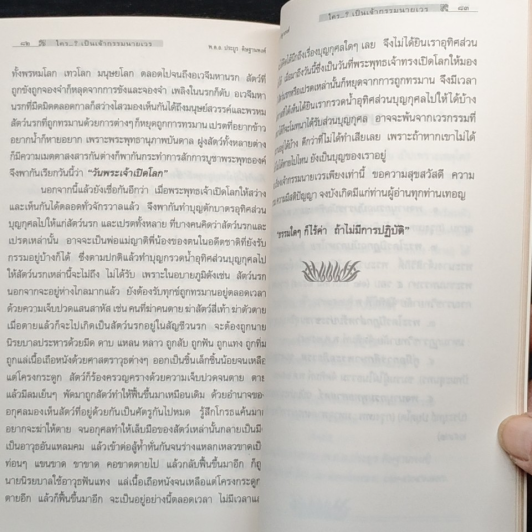 ๘๒ ใคร..? เป็นเจ้ากรรมนายเวร พ.ต.อ. ประกูร
ทั้งพรหมโลก เทวโลก มนุษยโลก ตลอดไปจนถึงอเวจีมหานรก สัตว์ที่
ถูกขังถูกจองจำก็หลุดจากการขังและจองจำ เพลิงในนรกก็ดับ อเวจีมหา
นรกที่มืดมิดตลอดกาลก็สว่างไสวมองเห็นกันได้ถึงมนุษย์สวรรค์และพรหม
สัตว์นรกที่ถูกทรมานด้วยการต่างๆ ก็หยุดถูกการทรมาน เปรตที่อยากข้าว
อยากน้ำก็หายอยาก เพราะพระพุทธานุภาพบันดาล ฝูงสัตว์ทั้งหลายต่าง
ก็มีความเมตตาสงสารกันต่างก็พากันกระทำการสักการบูชาพระพุทธองค์
จึงพากันเรียกวันนี้ว่า "วันพระเจ้าเปิดโลก"
นอกจากนี้แล้วยังเชื่อกันอีกว่า เมื่อพระพุทธเจ้าเปิดโลกให้สว่าง
และเห็นกันได้ตลอดทั่วจักรวาลแล้ว จึงพากันทำบุญตักบาตรอุทิศส่วน
บุญกุศลไปให้แก่สัตว์นรก และเปรตทั้งหลาย ที่บางคนคิดว่าสัตว์นรกและ
เปรตเหล่านั้น อาจจะเป็นพ่อแม่ญาติพี่น้องของตนในอดีตชาติที่ยังรับ
กรรมอยู่บ้างก็ได้ ซึ่งตามปกติแล้วทำบุญกรวดน้ำอุทิศส่วนบุญกุศลไป
ให้สัตว์นรกเหล่านี้จะไม่ถึง ไม่ได้รับ เพราะในอบายภูมิดังเช่น สัตว์นรก
นอกจากจะอยู่ห่างไกลมากแล้ว ยังต้องรับทุกข์ถูกทรมานอยู่ตลอดเวลา
ด้วยความเจ็บปวดแสนสาหัส เช่น คนที่ฆ่าคนตาย ฆ่าสัตว์สี่เท้า ฆ่าตัวตาย
เมื่อตายแล้วก็จะไปเกิดเป็นสัตว์นรกอยู่ในสัญชีวนรก จะต้องถูกนาย
นิรยบาลประหารด้วยมีด ดาบ แหลน หลาว ถูกสับ ถูกฟัน ถูกแทง ถูกทิ่ม
ถูกแล่เนื้อเถือหนังด้วยศาสตราวุธต่างๆ ออกเป็นชิ้นเล็กชิ้นน้อยจนเหลือ
แต่โครงกระดูก สัตว์ก็ร้องครวญครางด้วยความเจ็บปวดจนตาย ตาย
แล้วมีลมเย็นๆ พัดมาถูกสัตว์ทำให้ฟื้นขึ้นมาเหมือนเดิม ด้วยอำนาจของ
อกุศลมองเห็นสัตว์ที่อยู่ด้วยกันเป็นศัตรูกันไปหมด รู้สึกโกรธแค้นมา
อยากจะฆ่าให้ตาย จนอกุศลทำให้เล็บมือของสัตว์เหล่านั้นกลายเป็นมี
เป็นอาวุธอันแหลมคม แล้วเข้าต่อสู้ห้ำหั่นกันจนร่างแหลกเหลวขาดเป็
ท่อนๆ แขนขาด ขาขาด คอขาดตายไป แล้วกลับฟื้นขึ้นมาอีก ก็ถู
นายนิรยบาลใช้อาวุธฟันแทง แล่เนื้อเถือหนังจนเหลือแต่โครงกระดูก
ตายอีก แล้วก็ฟื้นขึ้นมาอีก จะเป็นอยู่อย่างนี้ตลอดเวลา ไม่มีเวลาแม
ใคร..? เป็นเจ้ากรรมนายเวร ๘๓
ได้ยินถึงเรื่องบุญกุศลใดๆ เลย จึงไม่ได้ยินเราอุทิศส่วน
มาถึงวันนี้ซึ่งเป็นวันที่พระพุทธเจ้าทรงเปิดโลกให้มอง
เปรตเหล่านั้นก็หยุดจากการถูกทรมาน จึงมีเวลา
ได้ยินเรากรวดน้ำอุทิศส่วนบุญกุศลไปให้ได้บ้าง
มาได้รับส่วนบุญกุศล อาจจะพ้นจากเวรกรรมที่
อยู่ได้บ้าง ดีกว่าที่ไม่ได้ทำเสียเลย เพราะถ้าหากเขาไม่ได้
ยังเป็นบุญของเราอยู่
เจ้ากรรมนายเวรเพียงเท่านี้ ขอความสุขสวัสดี ความ
สติปัญญา จงบังเกิดมีแก่ท่านผู้อ่านทุกท่านเทอญ
"ธรรมใดๆ ก็ไร้ค่า ถ้าไม่มีการปฏิบัติ"